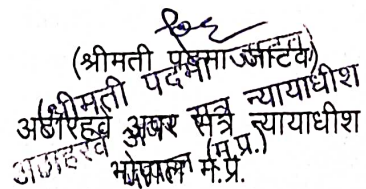 (श्रीमती पदमा जाटव)
(श्रीमती पदमा
अठारहवें अपर सत्र न्यायाधीश
अठारहवें अपर सत्र न्यायाधीश
भोपाल (म.प्र.)
भोपाल म.प्र.